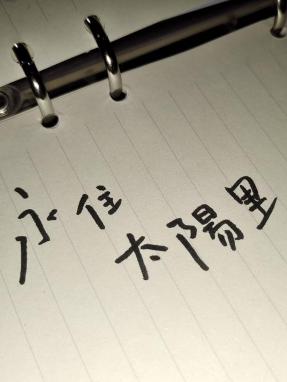 永住
太陽里